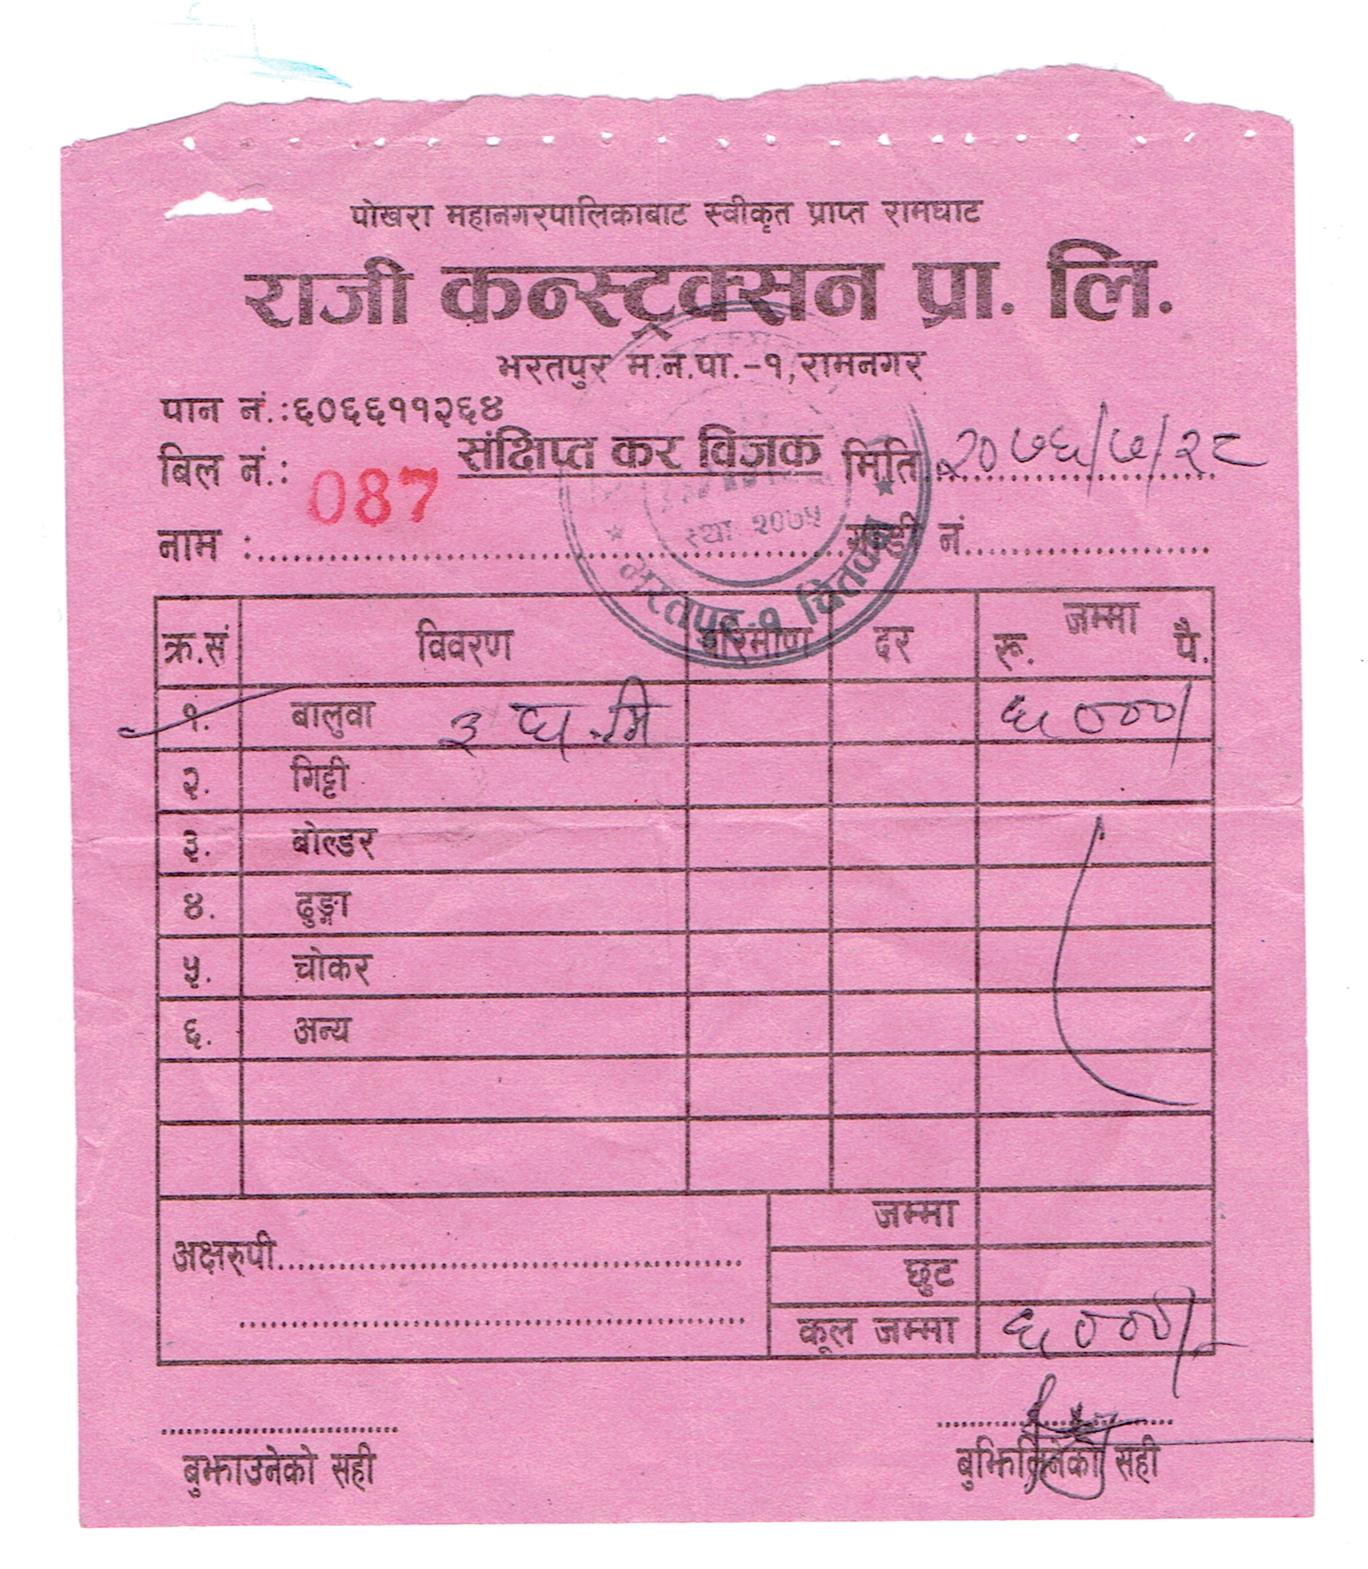 पोखरा महानगरपालिकाबाट स्वीकृत प्राप्त रामघाट
राजी कन्स्ट्रक्सन प्रा. लि.
भरतपुर म.न.पा.-१,रामनगर
पान नं.:६०६६११२६४
बिल नं.: 087 संक्षिप्त कर विजक मिति २०७६/७/२८
स्था २०७५
नाम : गाडी नं.
भरतपुर-१ चितवन
क्र.सं विवरण परिमाण दर जम्मा रू. पै.
१. बालुवा ३ घ.मि ६०००/
२. गिट्टी
३. बोल्डर
४. ढुङ्गा
५. चोकर
६. अन्य
जम्मा
अक्षरुपी
छुट
कूल जम्मा ६०००/-
बुझाउनेको सही बुझिलिनेको सही